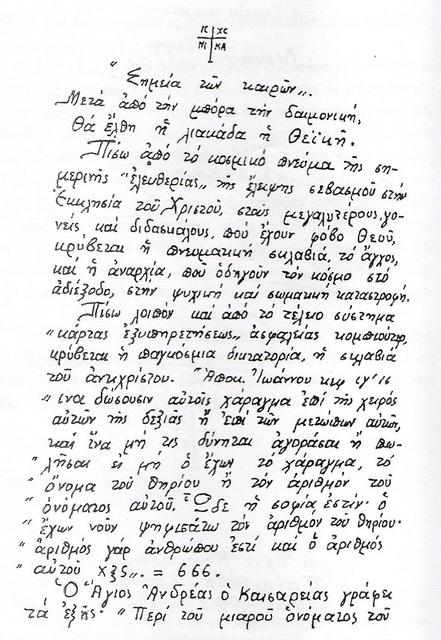 ΙC XC
ΝΙ ΚΑ
"Σημεία τῶν καιρῶν„.
Μετά ἀπό τήν μπόρα τήν δαιμονική,
Θά ἔλθη ἡ λιακάδα ἡ Θεϊκή.
Πίσω ἀπό τό κοσμικό πνεῦμα τῆς ση-
μερινῆς "ἐλευθερίας„ τῆς ἔλειψης σεβασμοῦ στήν
Ἐκκλησία τοῦ Χριστοῦ, στούς μεγαλυτέρους, γο-
νεῖς καί διδασκάλους, πού ἔχουν φόβο Θεοῦ,
κρύβεται ἡ πνευματική σκλαβιά, τό ἄγχος,
καί ἡ ἀναρχία, πού ὁδηγοῦν τόν κόσμο στό
ἀδιέξοδο, στήν ψυχική καί σωματική καταστροφή.
Πίσω λοιπόν καί ἀπό τό τέλειο σύστημα
"κάρτας ἐξυπηρετήσεως„ ἀσφαλείας κομπιούτερ,
κρύβεται ἡ παγκόσμια δικτατορία, ἡ σκλαβιά
τοῦ ἀντιχρίστου. "Ἀποκ. Ἰωάννου κεφ ιγ' 16
" ἵνα δώσουσιν αὐτοῖς χάραγμα ἐπί τῆς χειρός
αὐτῶν τῆς δεξιᾶς ἤ ἐπί τῶν μετώπων αὐτῶν,
καί ἵνα μή τις δύνηται ἀγοράσαι ἤ πω-
" λῆσαι εἰ μή ὁ ἔχων τό χάραγμα, τό
" ὄνομα τοῦ θηρίου ἤ τόν ἀριθμόν τοῦ
" ὀνόματος αὐτοῦ. Ὧδε ἡ σοφία ἐστίν· ὁ
" ἔχων νοῦν ψηφισάτω τόν ἀριθμόν τοῦ θηρίου·
" ἀριθμός γάρ ἀνθρώπου ἐστί καί ὁ ἀριθμός
" αὐτοῦ χξς„. = 666.
Ὁ Ἅγιος Ἀνδρέας ὁ Καισαρείας γράφει
τά ἑξῆς· "Περί τοῦ μιαροῦ ὀνόματος τοῦ